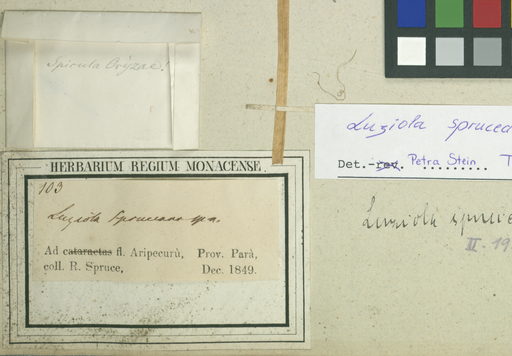 Spicula Oryzae!
Luziola spruceana
Det.-rev. Petra Stein T
HERBARIUM REGIUM MONACENSE.
103
Luziola Spruceana
Ad cataractas fl. Aripecurù, Prov. Parà,
coll. R. Spruce, Dec. 1849.
Luziola spruce
II. 19